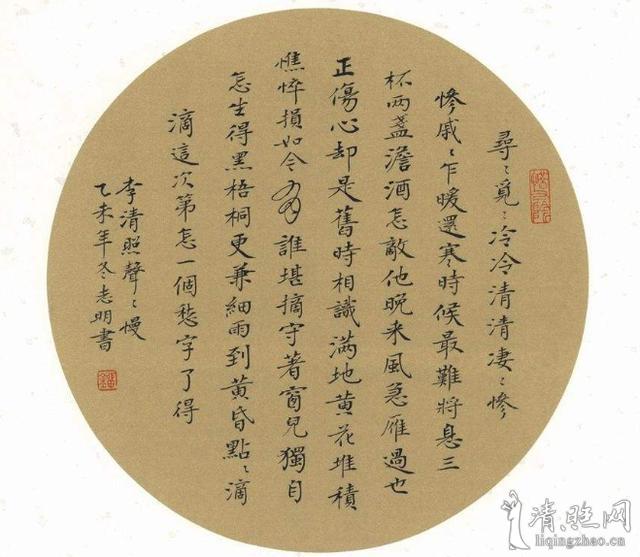 尋〻覓〻冷冷清清淒〻慘
慘戚〻乍暖還寒時候最難將息三
杯兩盞澹酒怎敵他晚来風急雁過也
正傷心却是舊時相識满地黄花堆積
憔悴損如今有誰堪摘守著窗兒獨自
怎生得黑梧桐更兼細雨到黄昏點〻滴
滴這次第怎一個愁字了得
李清照聲〻慢
乙未年冬志明書
清照网
liqingzhao.cn